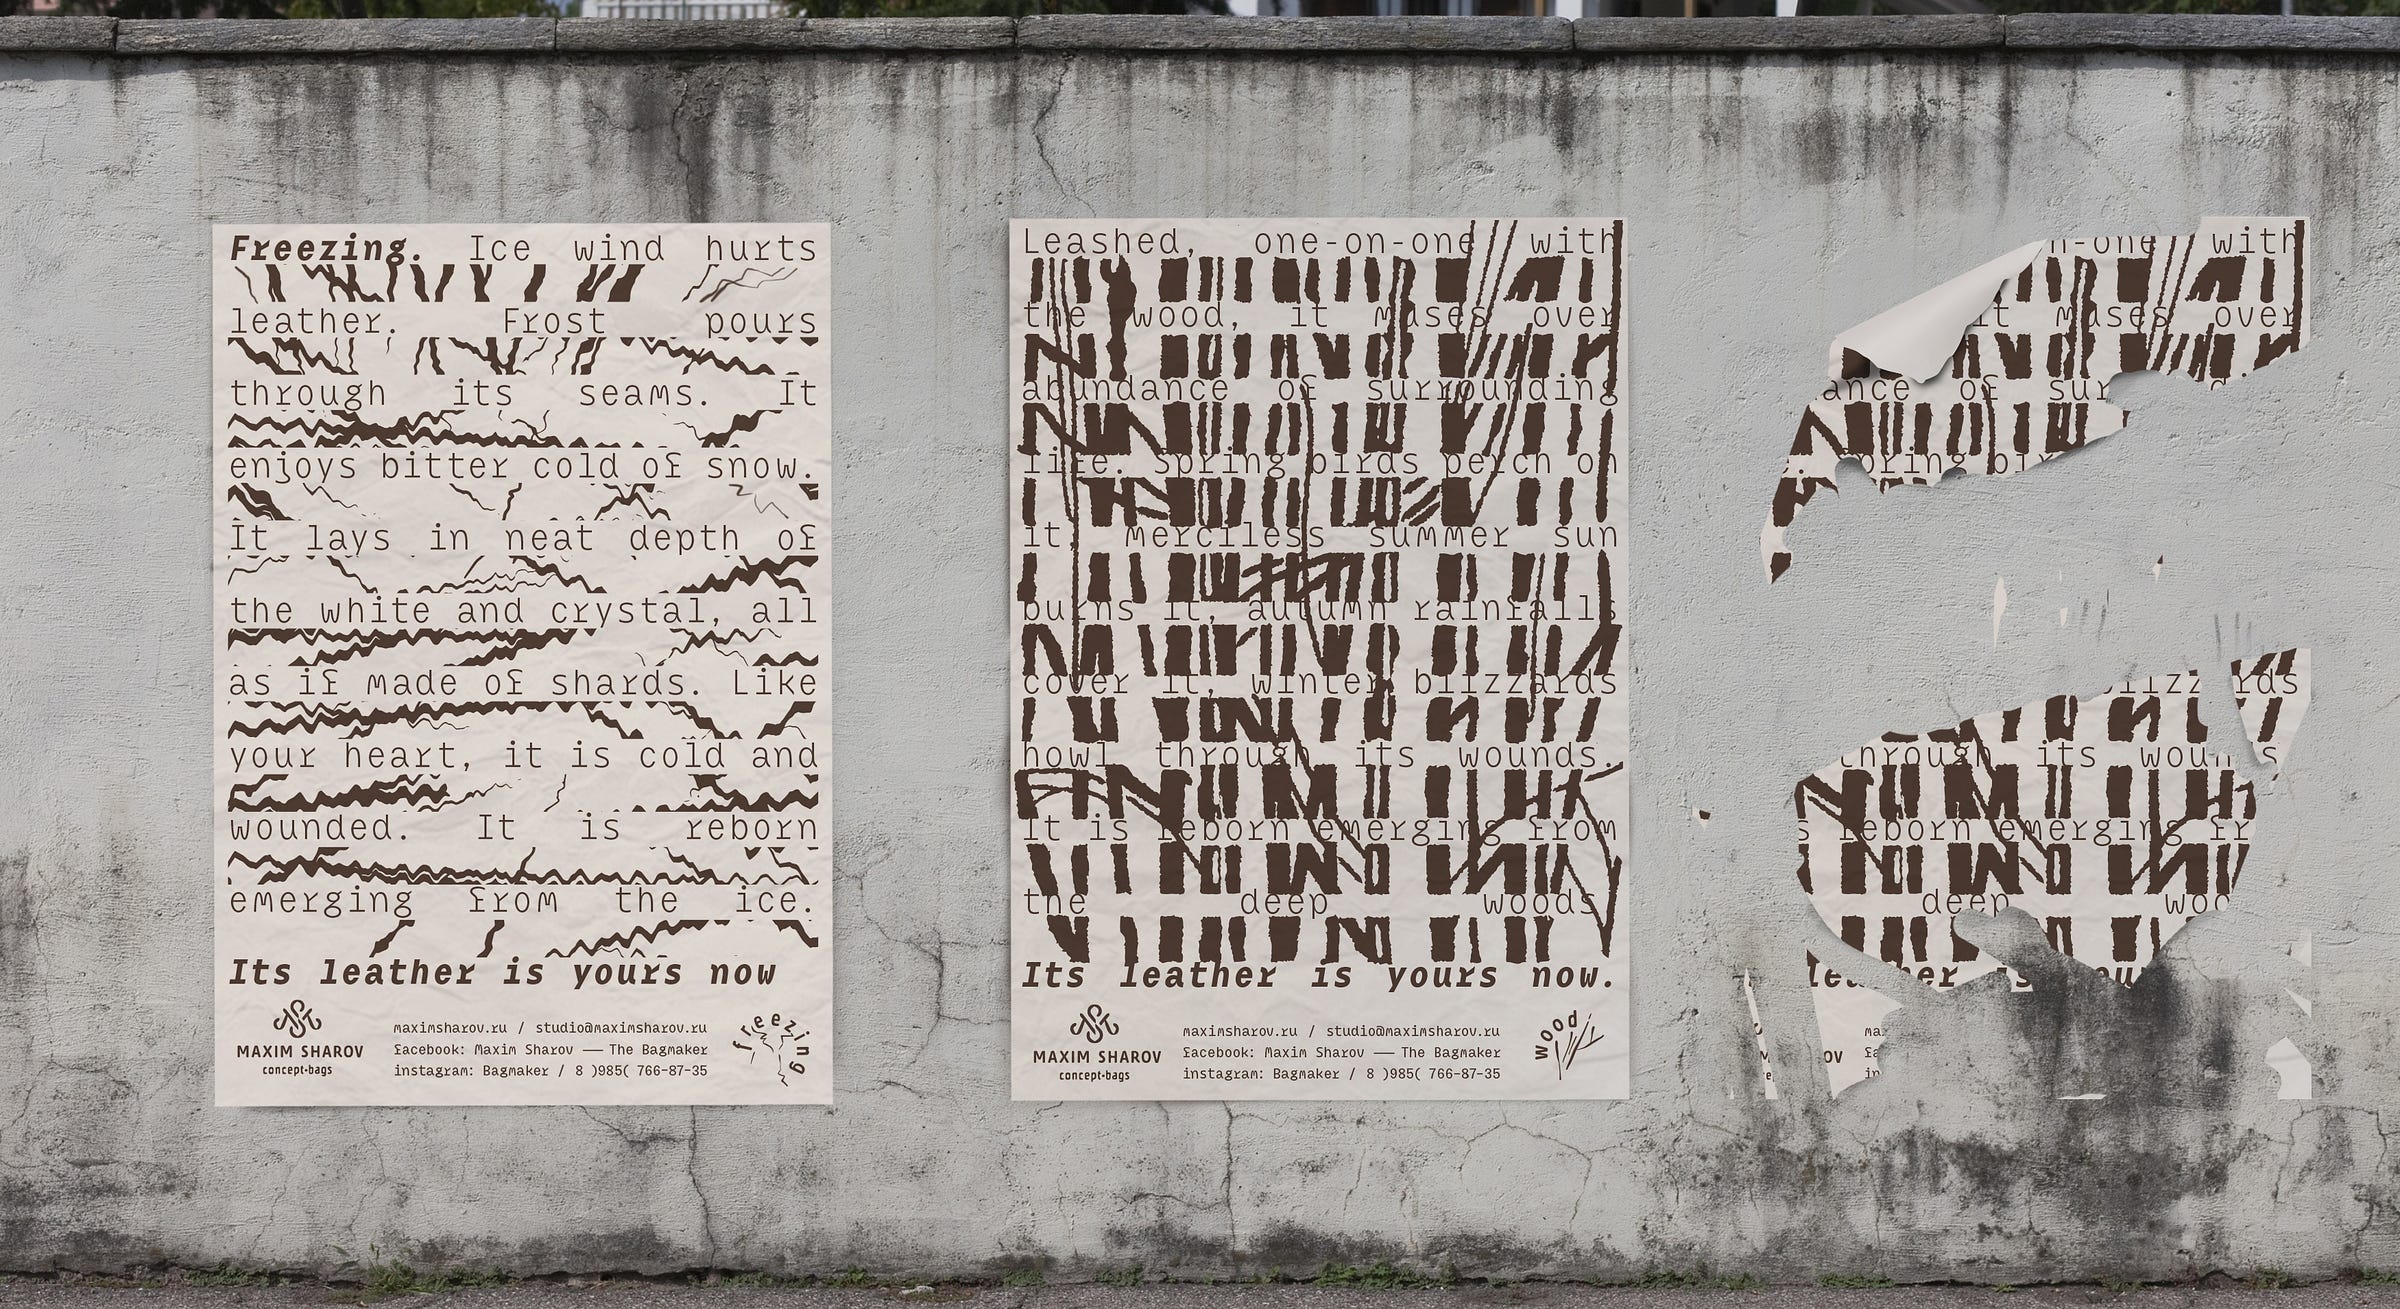 Freezing. Ice wind hurts
leather. Frost pours
through its seams. It
enjoys bitter cold of snow.
It lays in neat depth of
the white and crystal, all
as if made of shards. Like
your heart, it is cold and
wounded. It is reborn
emerging from the ice.
Its leather is yours now
MAXIM SHAROV
concept•bags
maximsharov.ru / studio@maximsharov.ru
facebook: Maxim Sharov — The Bagmaker
instagram: Bagmaker / 8 )985( 766-87-35
freezing
Leashed, one-on-one with
the wood, it muses over
abundance of surrounding
life. Spring birds perch on
it, merciless summer sun
burns it, autumn rainfalls
cover it, winter blizzards
howl through its wounds.
It is reborn emerging from
the deep woods
Its leather is yours now.
MAXIM SHAROV
concept•bags
maximsharov.ru / studio@maximsharov.ru
facebook: Maxim Sharov — The Bagmaker
instagram: Bagmaker / 8 )985( 766-87-35
wood
n-one with
it muses over
ance of sur
pring bir
blizz rds
through its wounds
s reborn emerging fr
deep woo
leather is your
ma
OV fa
in